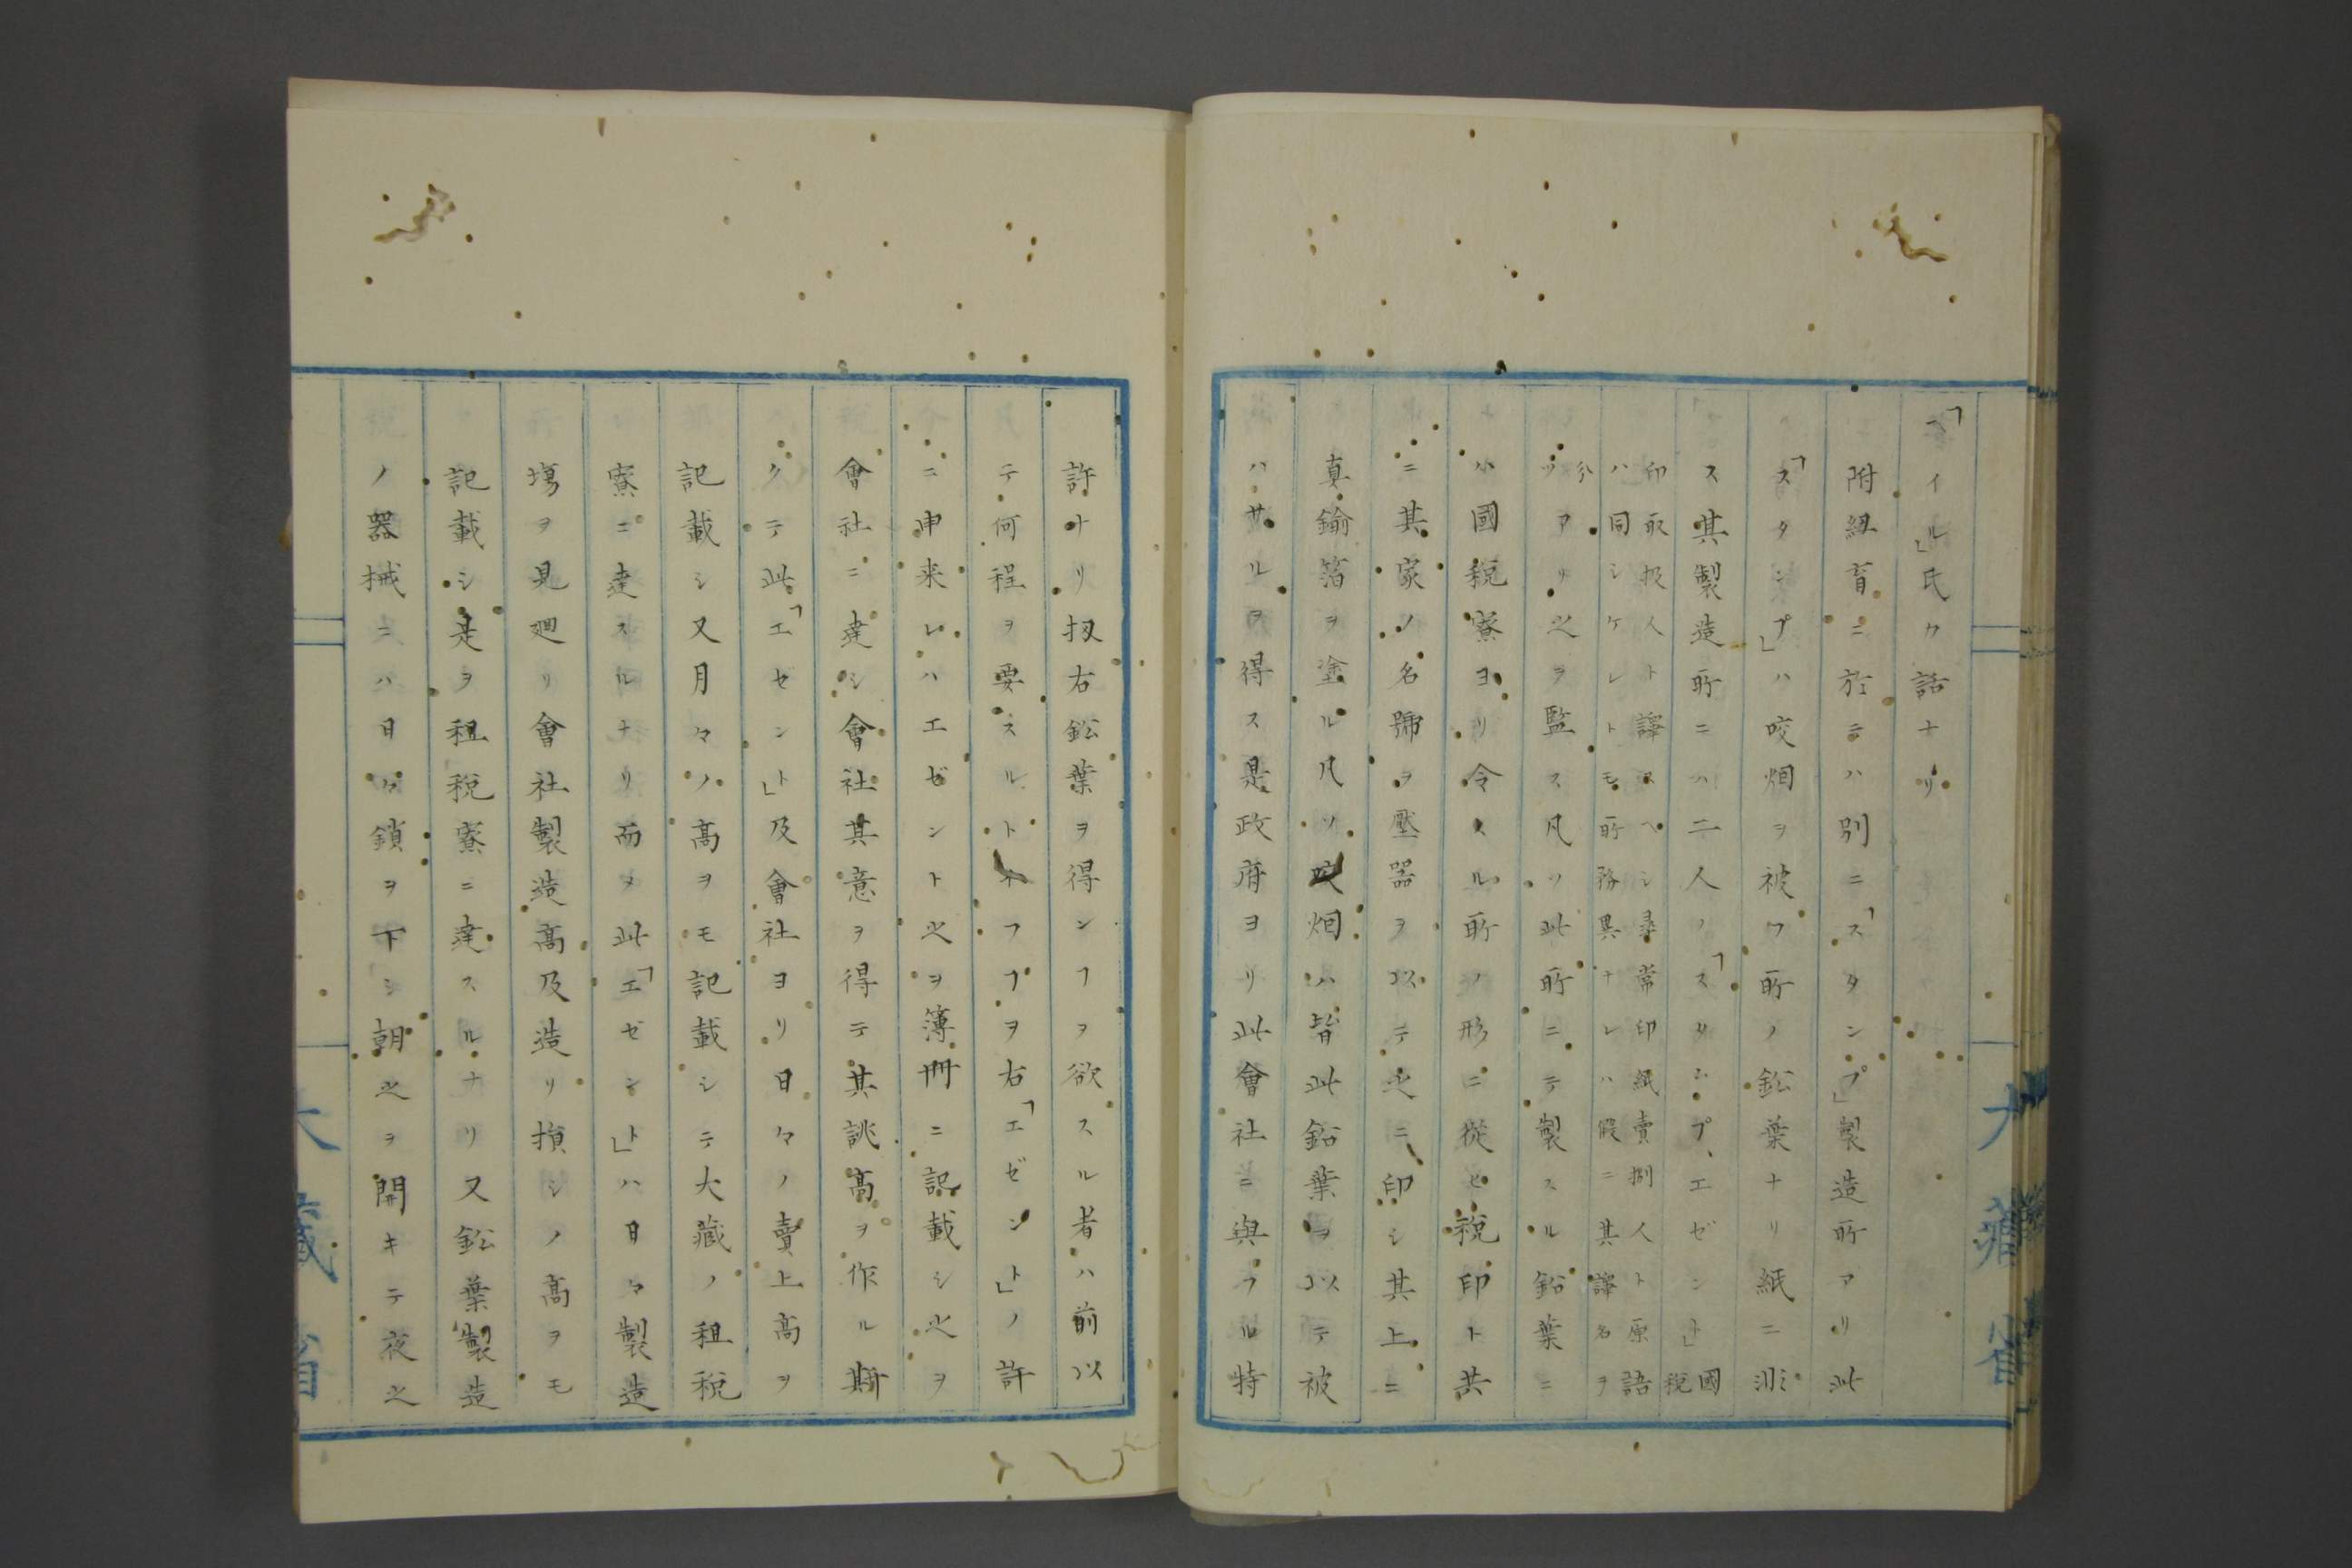 「ヘイル」氏カ話ナリ
附紐育ニ於テハ別ニ「スタンプ」製造所アリ此
「スタンプ」ハ咬烟ヲ被フ所ノ鈆葉ナリ紙ニ非
ス其製造所ニハ二人ノ「スタンプ、エゼント」國税
印取扱人ト譯スヘシ尋常印紙賣捌人ト原語
ハ同シケレトモ所務異ナレハ假ニ其譯名ヲ
分ツアリ之ヲ監ス凡ソ此所ニテ製スル鉛葉ニ
ハ國税寮ヨリ令スル所ノ形ニ從ヒ税印ト共
ニ其家ノ名號ヲ壓器ヲ以テ之ニ印シ其上ニ
真鍮箔ヲ塗ル凡ソ咬烟ハ皆此鉛葉ヲ以テ被
ハサルヲ得ス是政府ヨリ此會社ニ與フル特
許ナリ扨右鈆葉ヲ得ンフヲ欲スル者ハ前以
テ何程ヲ要スルトイフフヲ右「エゼント」ノ許
ニ申来レハエゼント之ヲ簿冊ニ記載シ之ヲ
會社ニ達シ會社其意ヲ得テ其誂高ヲ作ル斯
クテ此「エゼント」及會社ヨリ日々ノ賣上高ヲ
記載シ又月々ノ高ヲモ記載シテ大藏ノ租税
寮ニ達スルナリ而メ此「エゼント」ハ日々製造
塲ヲ見廻リ會社製造高及造リ損シノ高ヲモ
記載シ是ヲ租税寮ニ達スルナリ又鈆葉製造
ノ器械ニハ日々鎖ヲ下シ朝之ヲ開キテ夜之
大藏省
大藏省